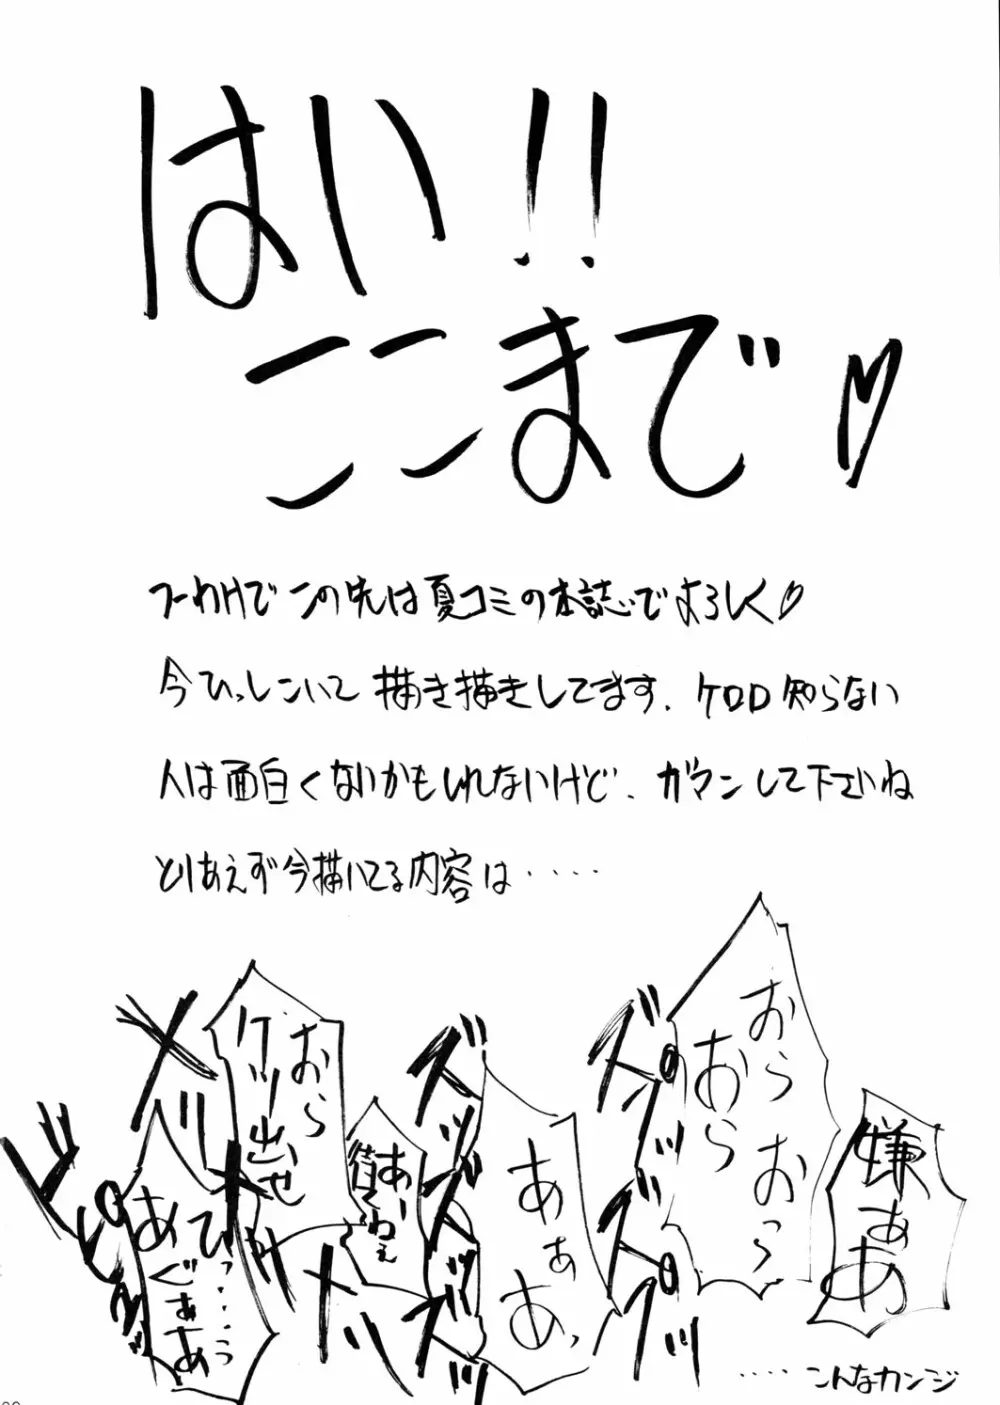 はい!!
ここまで♡
つーわけでこの先は夏コミの本誌でよろしく♡
今ひっしこいて描き描きしてます．ケロロ知らない
人は面白くないかもしれないけど．ガマンして下さいね
とりあえず今描いてる内容は‥‥‥
嫌ぁあ
おらおっ
おら
ズパンッ
ズパンッ
あぁあっ
ズッズッズッ
あー
おら
ひっ‥‥‥うっ
あぐぁあ
‥‥こんなカンジ